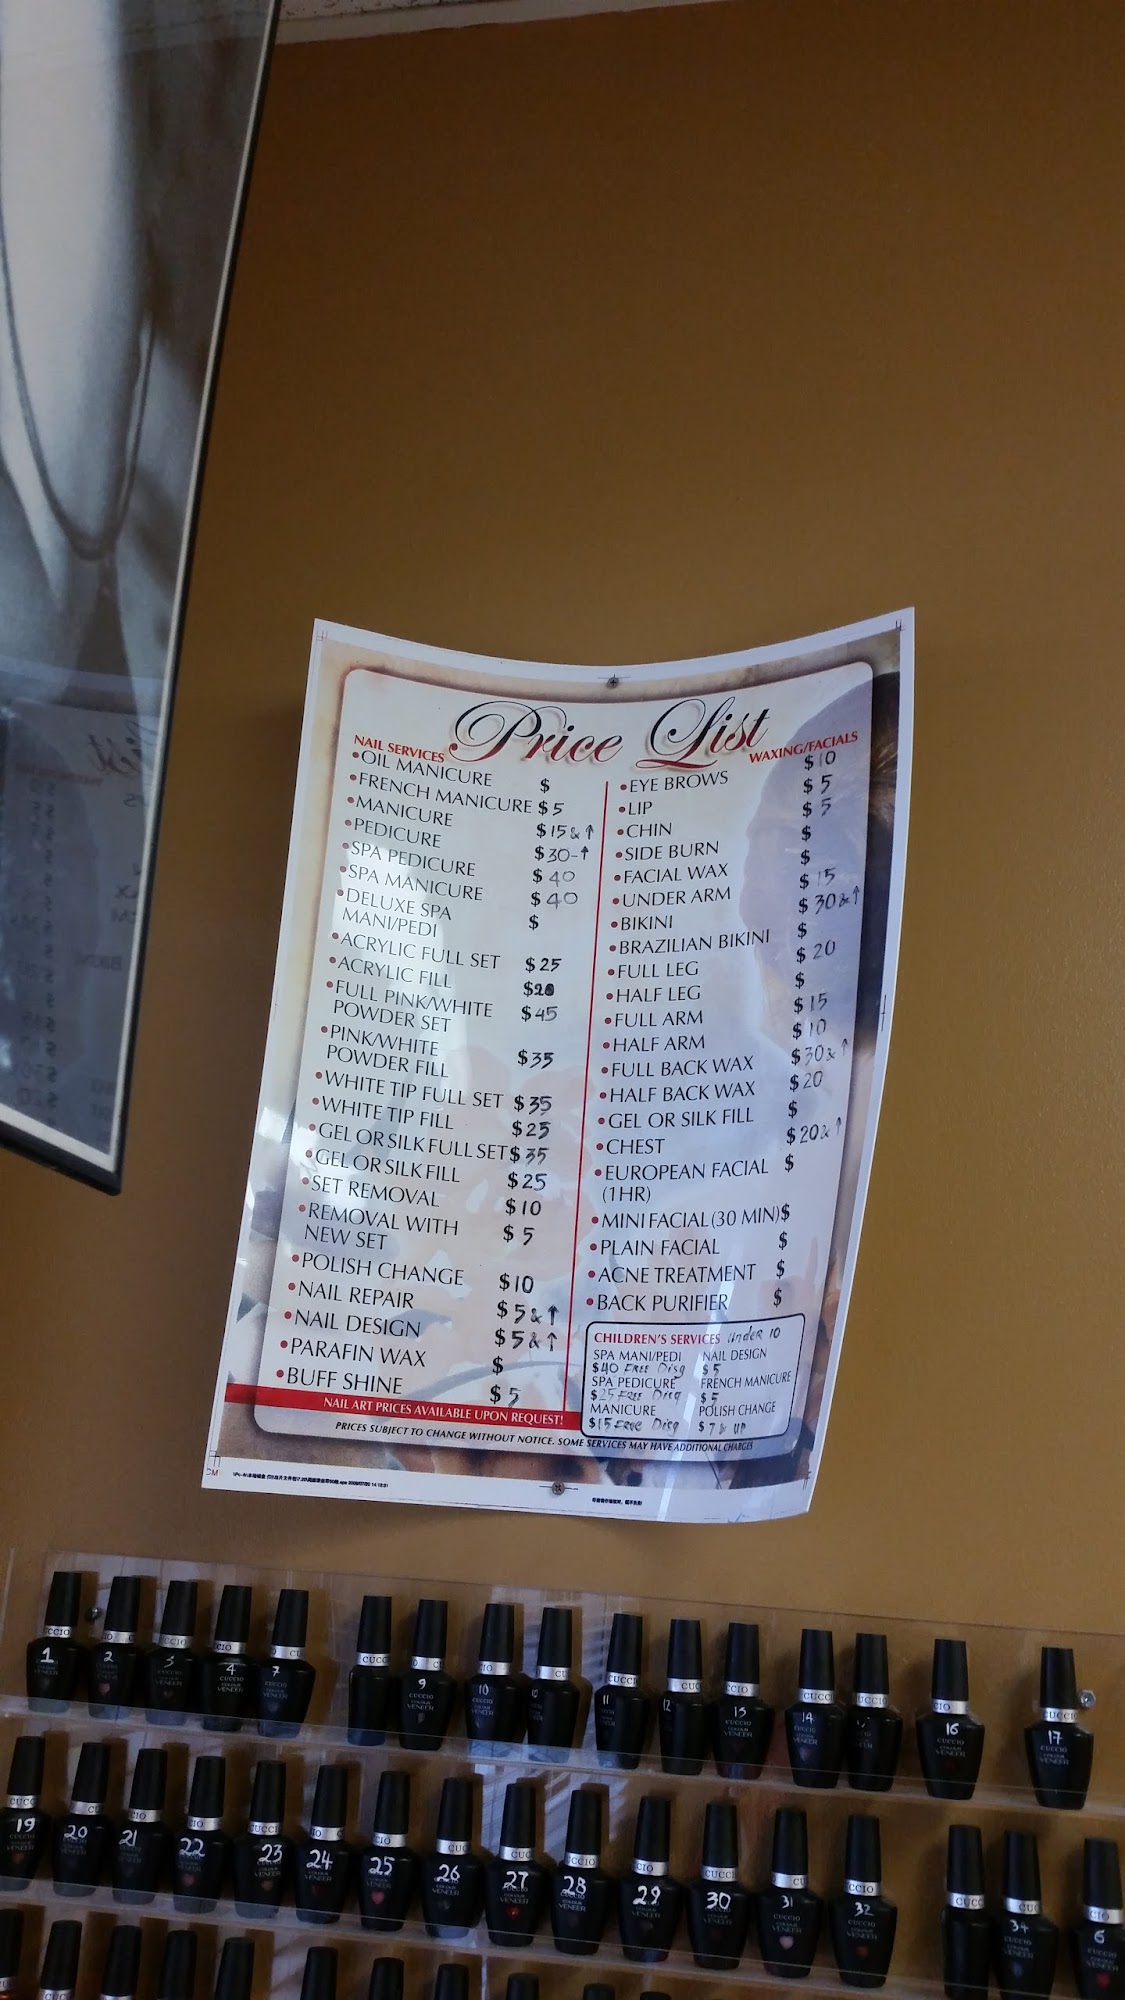 Price List
NAIL SERVICES
•OIL MANICURE $
•FRENCH MANICURE $5
•MANICURE $15 & ↑
•PEDICURE $30-↑
•SPA PEDICURE $40
•SPA MANICURE $40
•DELUXE SPA
MANI/PEDI $
•ACRYLIC FULL SET $25
•ACRYLIC FILL $20
•FULL PINK/WHITE
POWDER SET $45
•PINK/WHITE
POWDER FILL $35
•WHITE TIP FULL SET $35
•WHITE TIP FILL $25
•GEL OR SILK FULL SET $35
•GEL OR SILK FILL $25
•SET REMOVAL $10
•REMOVAL WITH
NEW SET $5
•POLISH CHANGE $10
•NAIL REPAIR $5 & ↑
•NAIL DESIGN $5 & ↑
•PARAFIN WAX $
•BUFF SHINE $5
NAIL ART PRICES AVAILABLE UPON REQUEST!
WAXING/FACIALS
•EYE BROWS $10
•LIP $5
•CHIN $5
•SIDE BURN $
•FACIAL WAX $
•UNDER ARM $15
•BIKINI $30 & ↑
•BRAZILIAN BIKINI $
•FULL LEG $20
•HALF LEG $
•FULL ARM $15
•HALF ARM $10
•FULL BACK WAX $30 & ↑
•HALF BACK WAX $20
•GEL OR SILK FILL $
•CHEST $20 & ↑
•EUROPEAN FACIAL $
(1HR)
•MINI FACIAL (30 MIN) $
•PLAIN FACIAL $
•ACNE TREATMENT $
•BACK PURIFIER $
CHILDREN'S SERVICES under 10
SPA MANI/PEDI NAIL DESIGN
$40 FREE Disg $5
SPA PEDICURE FRENCH MANICURE
$25 FREE Disg $5
MANICURE POLISH CHANGE
$15 FREE Disg $7 & UP
PRICES SUBJECT TO CHANGE WITHOUT NOTICE. SOME SERVICES MAY HAVE ADDITIONAL CHARGES
1 2 3 4 7 9 10 11 12 13 14 16 17
CUCCIO
COLOUR
VENEER
19 20 21 22 23 24 25 26 27 28 29 30 31 32 34 6
CUCCIO
COLOUR
VENEER